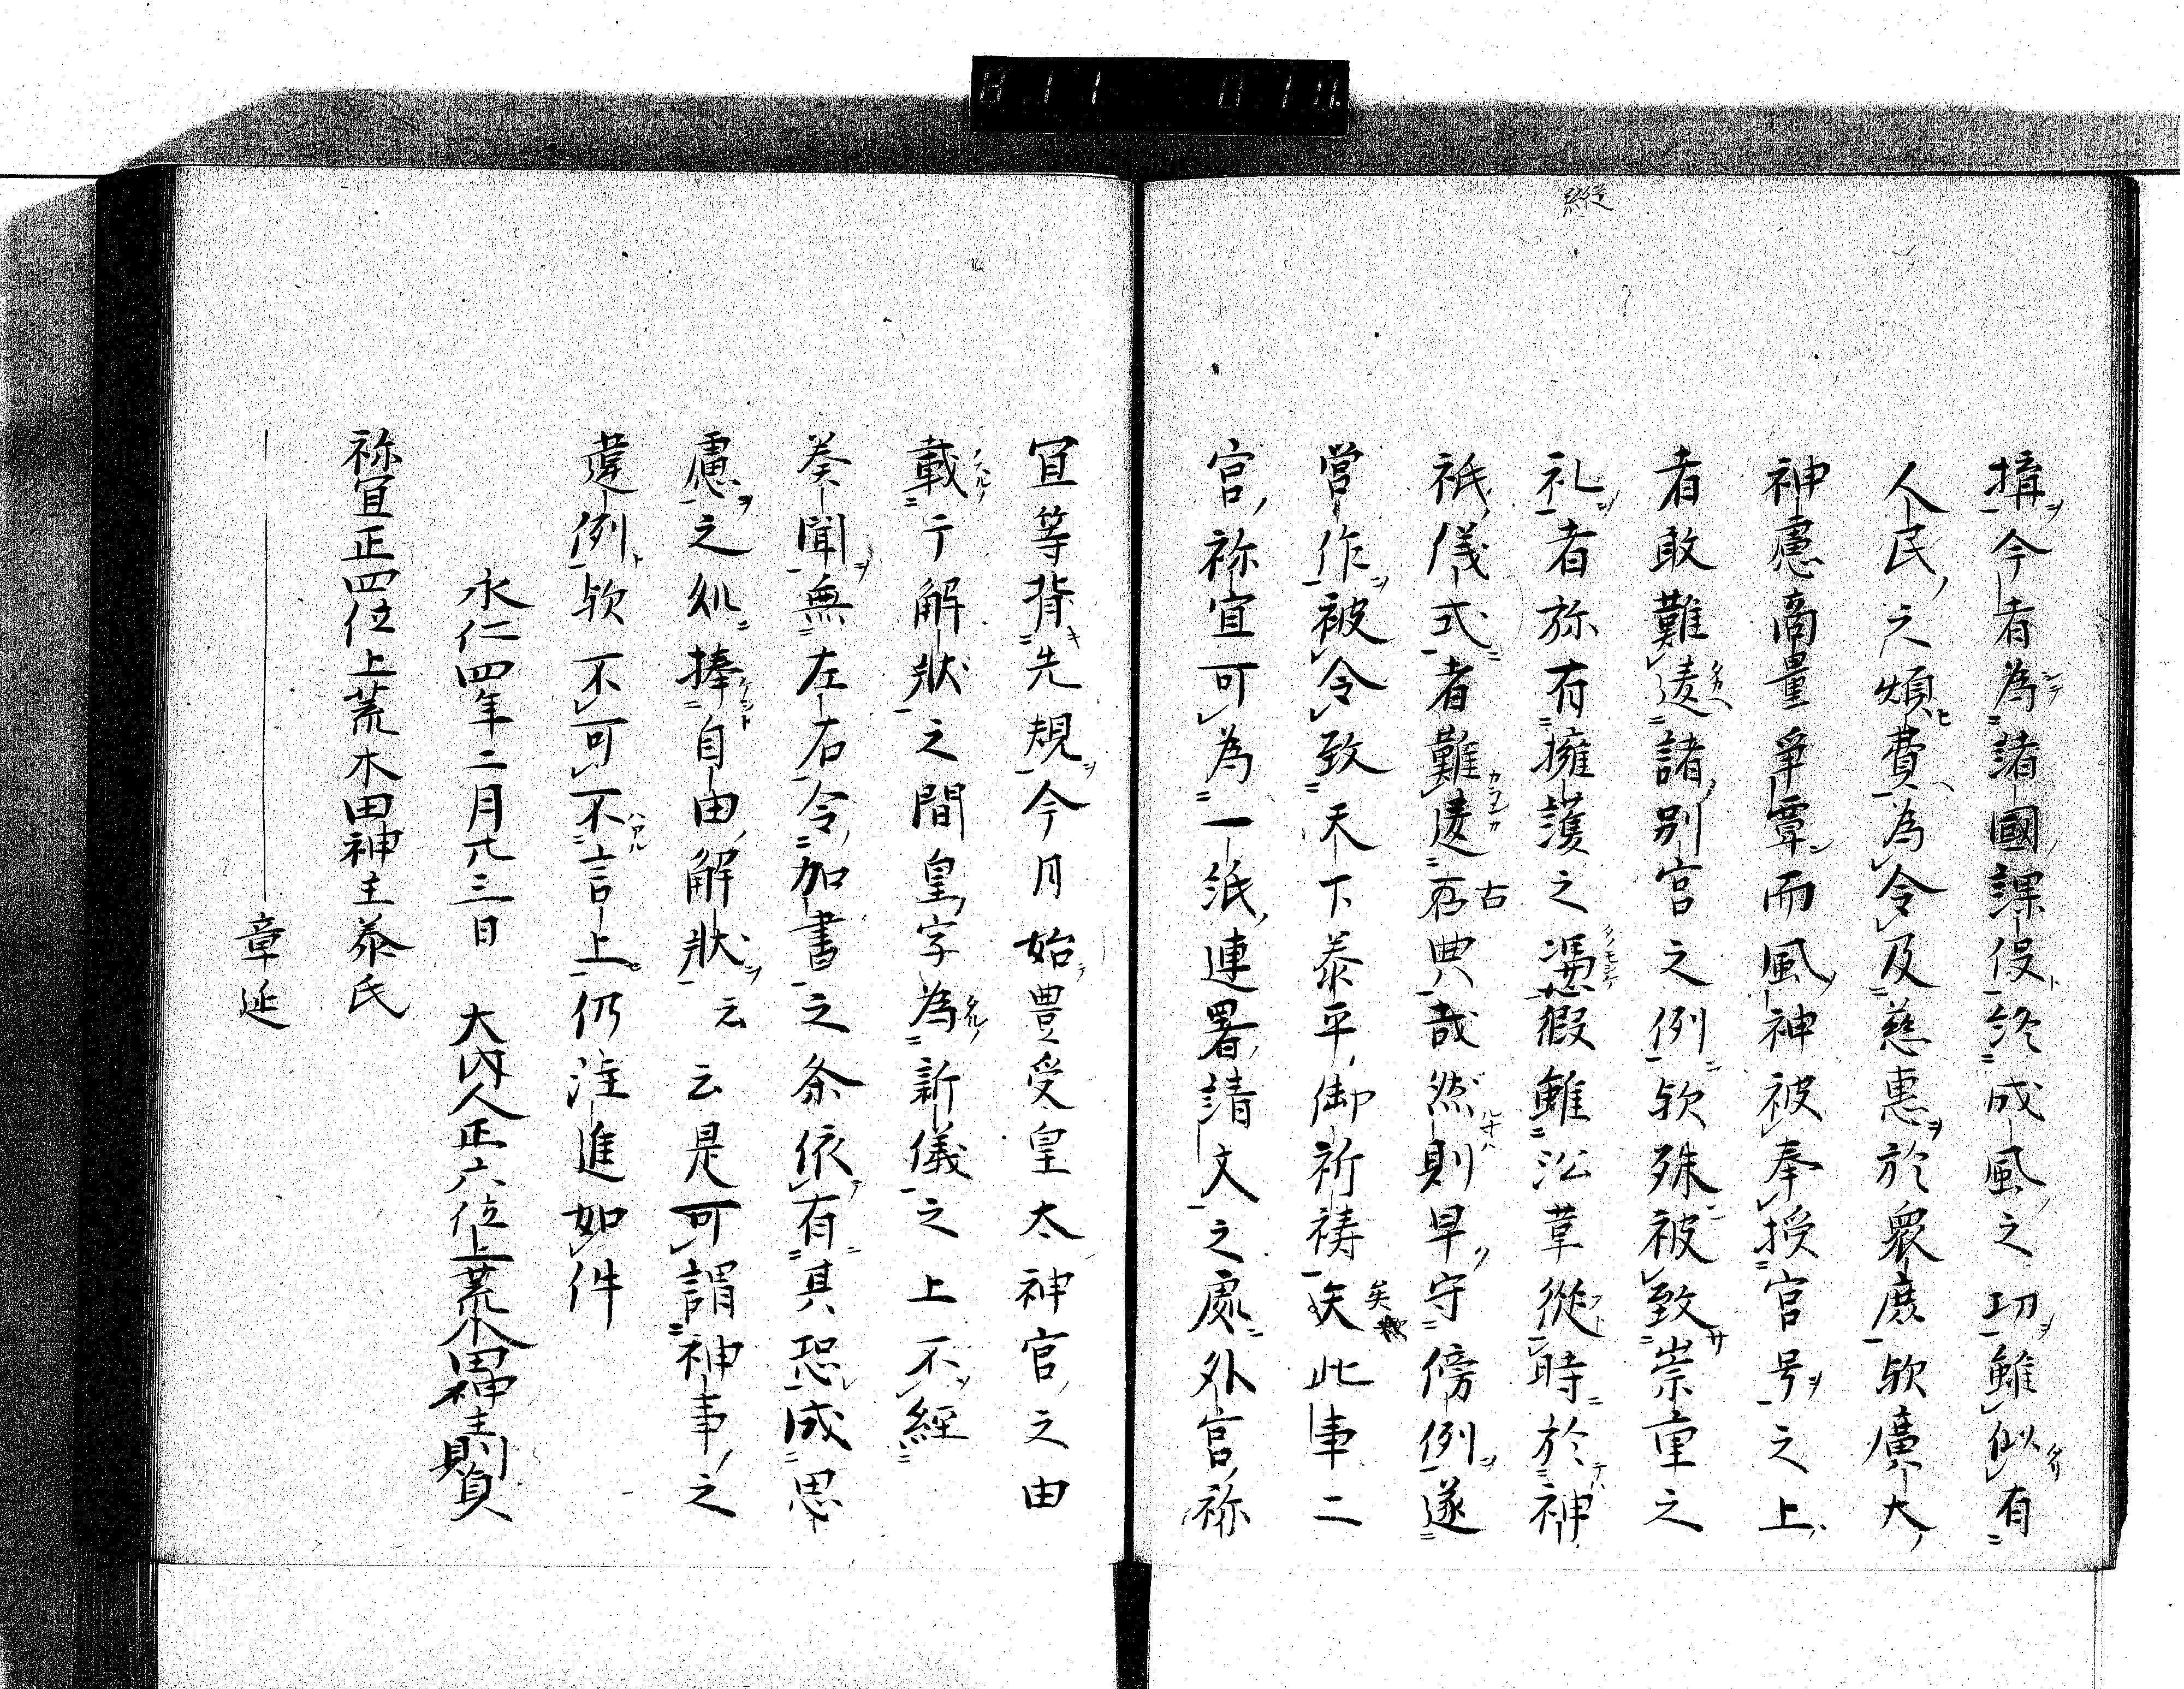 搆今者為諸國課役終成風之功雖似有
人民之煩費為令及慈惠於衆庶欤廣大
神慮商量爭覃而風神被奉授宮号之上
者敢難違諸別宮之例欤殊被致崇重之
礼者弥有擁護之憑假雖沿革從時於神
祇儀式者難違古典哉然則早守傍例遂
營作被令致天下泰平御祈禱矣此事二
宮祢宜可為一紙連署請文之處外宮祢
宜等背先規今月始豊受皇太神宮之由
載于解狀之間皇字為新儀之上不經
奏聞無左右令加書之条依有其恐成思
慮之処捧自由解狀云云是可謂神事之
違例欤不可不言上仍注進如件
永仁四年二月廿三日 大内人正六位上荒木田神主則員
祢宜正四位上荒木田神主泰氏
章延
縱